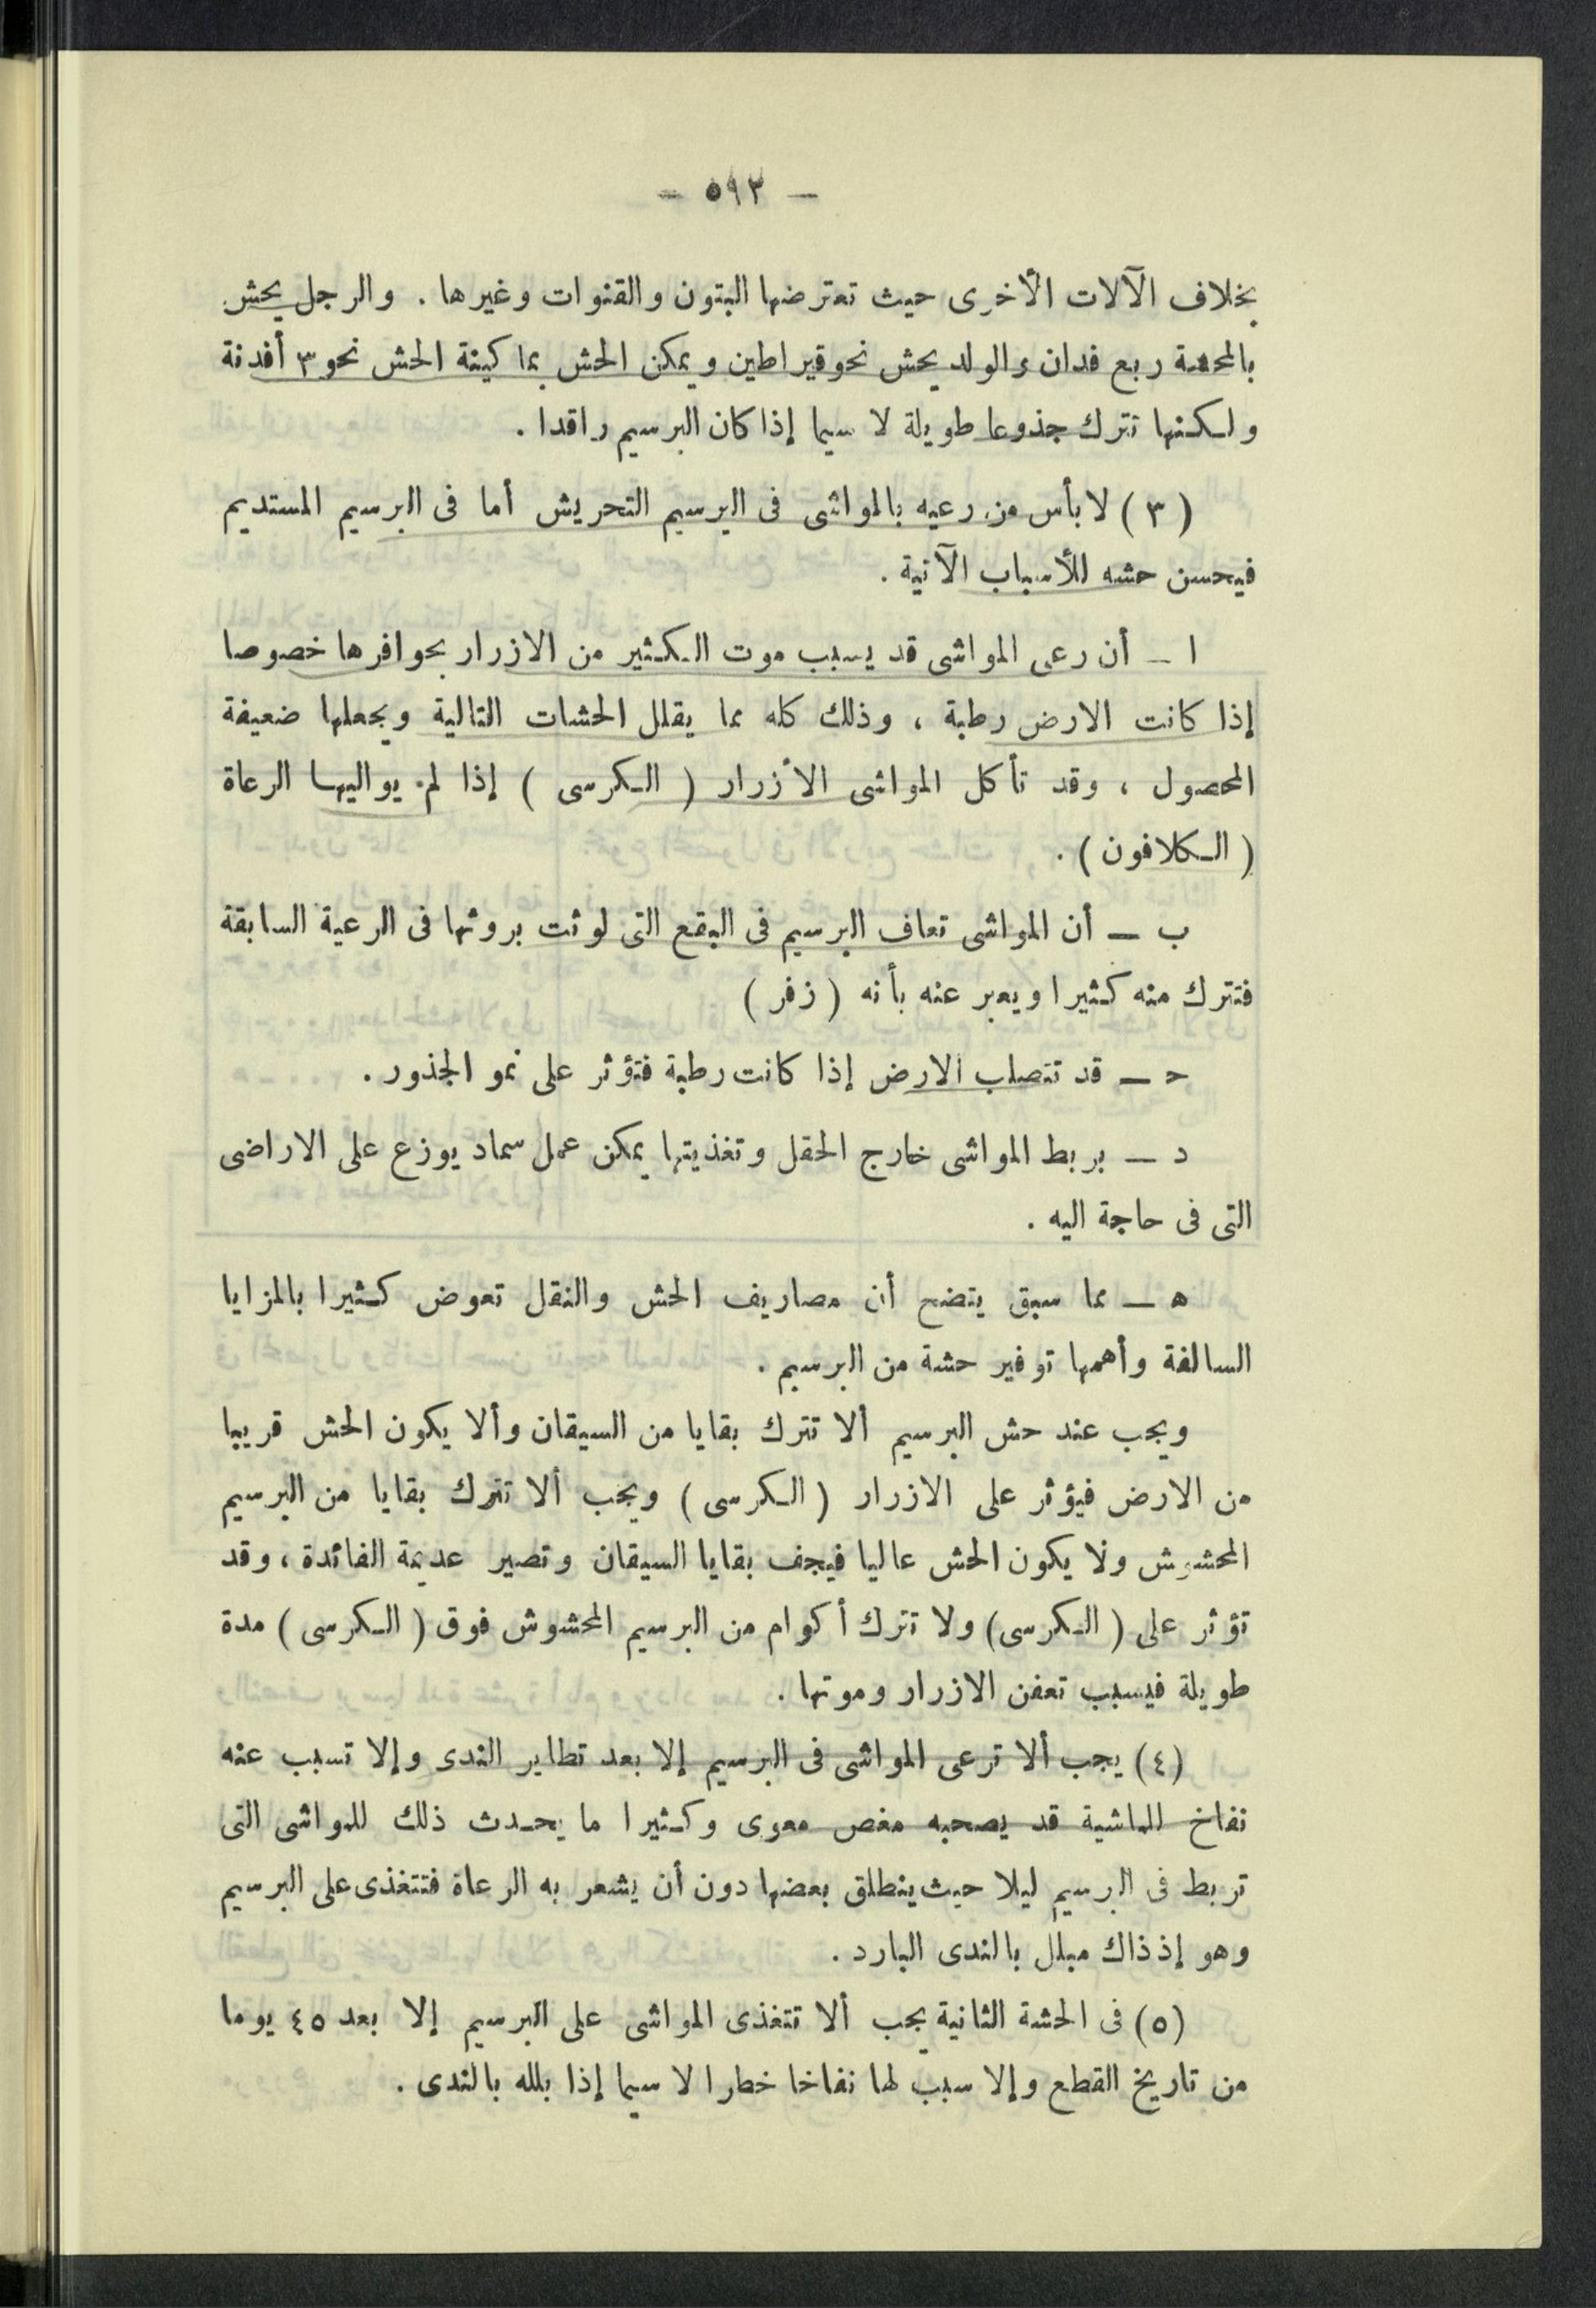 — ٥٩٣ —
بخلاف الآلات الأخرى حيث تعترضها البتون والقنوات وغيرها . والرجل يحش
بالمحشة ربع فدان والولد يحش نحو قيراطين ويمكن الحش بماكينة الحش نحو ٣ أفدنة
ولكنها تترك جذوعا طويلة لا سيما إذا كان البرسيم راقدا .
( ٣ ) لا بأس من رعيه بالمواشى فى البرسيم التحريش أما فى البرسيم المستديم
فيحسن حشه للأسباب الآتية .
ا — أن رعى المواشى قد يسبب موت الكثير من الازرار بحوافرها خصوصا
إذا كانت الارض رطبة ، وذلك كله مما يقلل الحشات التالية ويجعلها ضعيفة
المحصول ، وقد تأكل المواشى الأزرار ( الكرسى ) إذا لم يواليها الرعاة
( الكلافون ) .
ب — أن المواشى تعاف البرسيم فى البقع التى لوثت بروثها فى الرعية السابقة
فتترك منه كثيرا ويعبر عنه بأنه ( زفر )
حـ — قد تتصلب الارض إذا كانت رطبة فتؤثر على نمو الجذور .
د — بربط المواشى خارج الحقل وتغذيتها يمكن عمل سماد يوزع على الاراضى
التى فى حاجة اليه .
ه — مما سبق يتضح أن مصاريف الحش والنقل تعوض كثيرا بالمزايا
السالفة وأهمها توفير حشة من البرسيم .
ويجب عند حش البرسيم ألا تترك بقايا من السيقان وألا يكون الحش قريبا
من الارض فيؤثر على الازرار ( الكرسى ) ويجب ألا تترك بقايا من البرسيم
المحشوش ولا يكون الحش عاليا فيجف بقايا السيقان وتصير عديمة الفائدة ، وقد
تؤثر على ( الكرسى ) ولا تترك أكوام من البرسيم المحشوش فوق ( الكرسى ) مدة
طويلة فيسبب تعفن الازرار وموتها .
( ٤ ) يجب ألا ترعى المواشى فى البرسيم إلا بعد تطاير الندى وإلا تسبب عنه
نفاخ للماشية قد يصحبه مغص معوى وكثيرا ما يحدث ذلك للمواشى التى
تربط فى البرسيم ليلا حيث ينطلق بعضها دون أن يشعر به الرعاة فتتغذى على البرسيم
وهو إذ ذاك مبلل بالندى البارد .
( ٥ ) فى الحشة الثانية يجب ألا تتغذى المواشى على البرسيم إلا بعد ٤٥ يوما
من تاريخ القطع وإلا سبب لها نفاخا خطرا لا سيما إذا بلله بالندى .